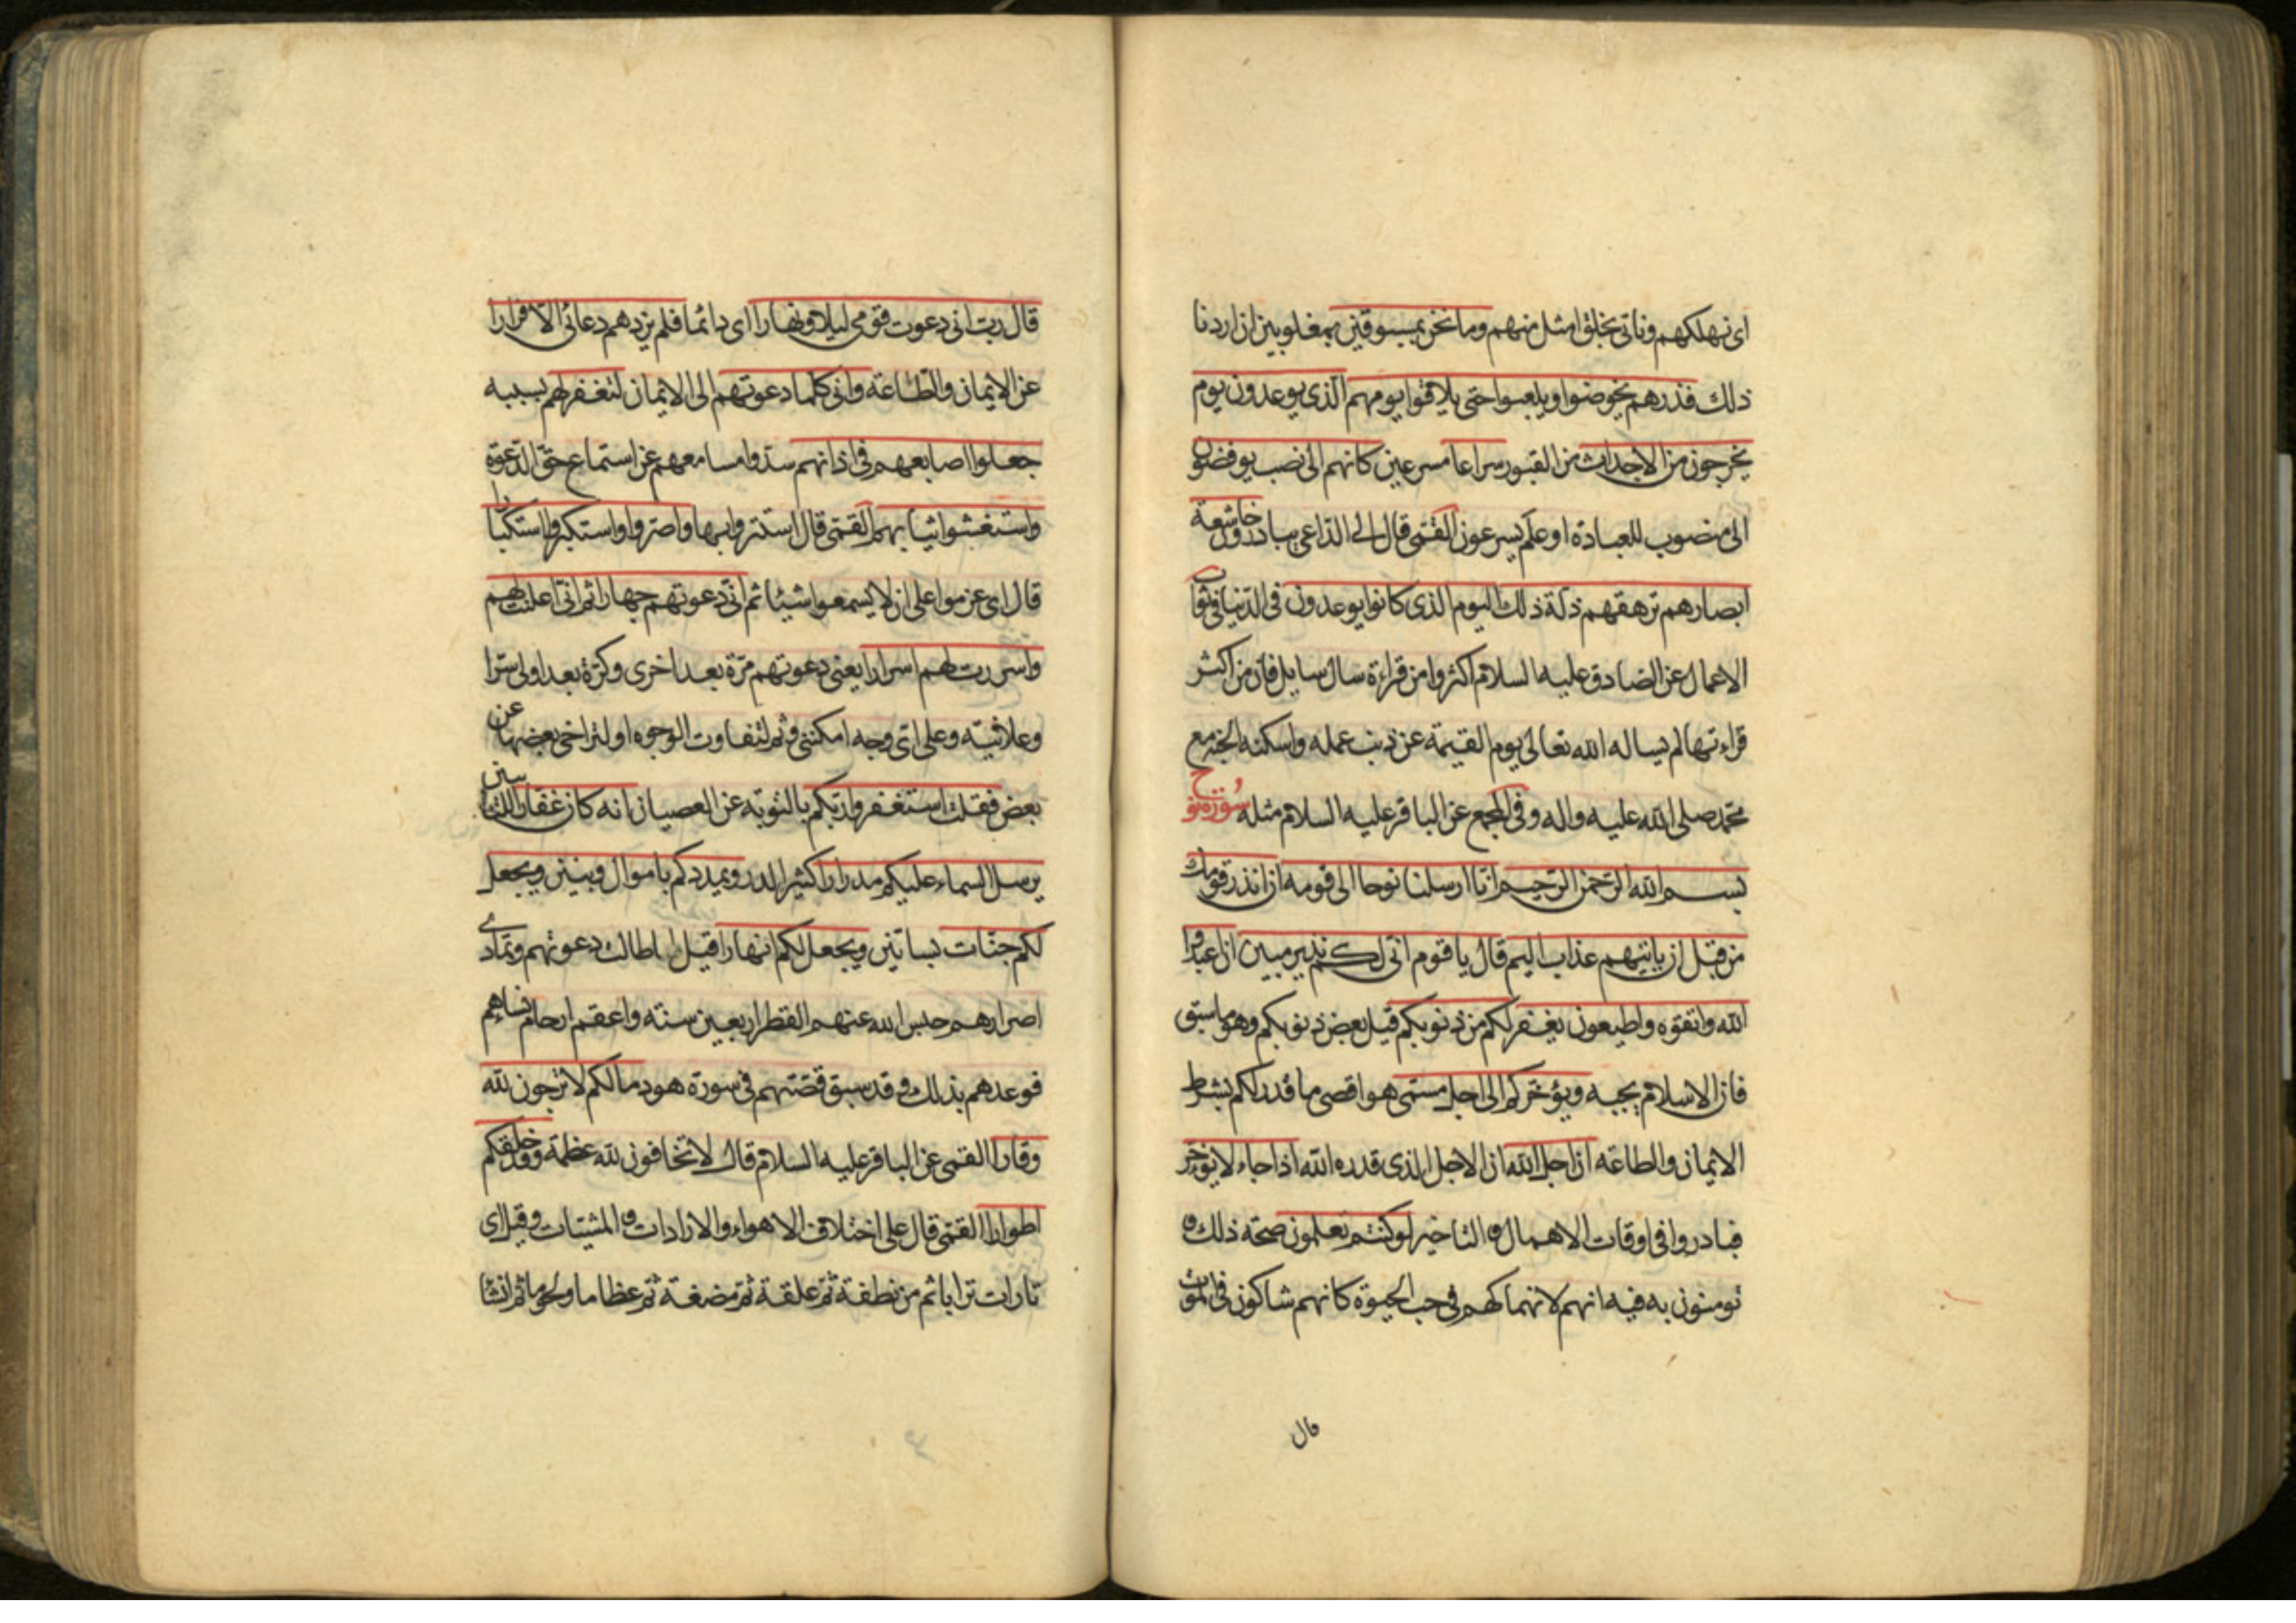 اى نهلكهم وناتى بخلق امثل منهم وما نحن بمسبوقين بمغلوبين ان اردنا
ذلك فذرهم يخوضوا ويلعبوا حتى يلاقوا يومهم الذى يوعدون يوم
يخرجون من الاجداث من القبور سراعا مسرعين كانهم الى نصب يوفضون
الى منصوب للعبادة او علم يسرعون القمى قال الى الداعى يبادرون خاشعة
ابصارهم ترهقهم ذلة ذلك اليوم الذى كانوا يوعدون فى الدنيا فى ثواب
الاعمال عن الصادق عليه السلام اكثروا من قراءة سال سايل فان من اكثر
قراءتها لم يساله الله تعالى يوم القيمة عن ذنب عمله واسكنه الجنة مع
محمد صلى الله عليه واله وفى المجمع عن الباقر عليه السلام مثله سورة نوح
بسم الله الرحمن الرحيم انا ارسلنا نوحا الى قومه ان انذر قومك
من قبل ان ياتيهم عذاب اليم قال يا قوم انى لكم نذير مبين ان اعبدوا
الله واتقوه واطيعون يغفر لكم من ذنوبكم قيل بعض ذنوبكم وهو ما سبق
فان الاسلام يجبه ويؤخركم الى اجل مسمى هو اقصى ما قدر لكم بشرط
الايمان والطاعة ان اجل الله ان الاجل الذى قدره الله اذا جاء لا يؤخر
فبادروا فى اوقات الاهمال و التاخير لو كنتم تعلمون صحة ذلك و
تومنون به فيه انهم لانهماكهم فى حب الحيوة كانهم شاكون فى الموت
قال
قال رب انى دعوت قومى ليلا ونهارا اى دائما فلم يزدهم دعائى الا فرارا
عن الايمان والطاعة وانى كلما دعوتهم الى الايمان لتغفر لهم بسببه
جعلوا اصابعهم فى اذانهم سدوا مسامعهم عن استماع حق الدعوة
واستغشوا ثيابهم القمى قال استتروا بها واصروا واستكبروا استكبارا
قال اى عزموا على ان لا يسمعوا شيئا ثم انى دعوتهم جهارا ثم انى اعلنت لهم
واسررت لهم اسرارا يعنى دعوتهم مرة بعد اخرى وكرة بعد اولى سرا
وعلانية وعلى اى وجه امكننى وثم لتفاوت الوجوه او لتراخى بعضها عن
بعض فقلت استغفروا ربكم بالتوبة عن العصيان انه كان غفارا للتائبين
يرسل السماء عليكم مدرارا كثير الدر ويمددكم باموال وبنين ويجعل
لكم جنات بساتين ويجعل لكم انهارا قيل لما طالت دعوتهم وتمادى
اصرارهم حبس الله عنهم القطر اربعين سنة واعقم ارحام نساءهم
فوعدهم بذلك و قد سبق قصتهم فى سورة هود ما لكم لا ترجون لله
وقارا القمى عن الباقر عليه السلام قال لا تخافون لله عظمة وقد خلقكم
اطوارا القمى قال على اختلاف الاهواء والارادات و المشيات وقيل اى
تارات ترابا ثم من نطفة ثم علقة ثم مضغة ثم عظاما ولحوما ثم انشا